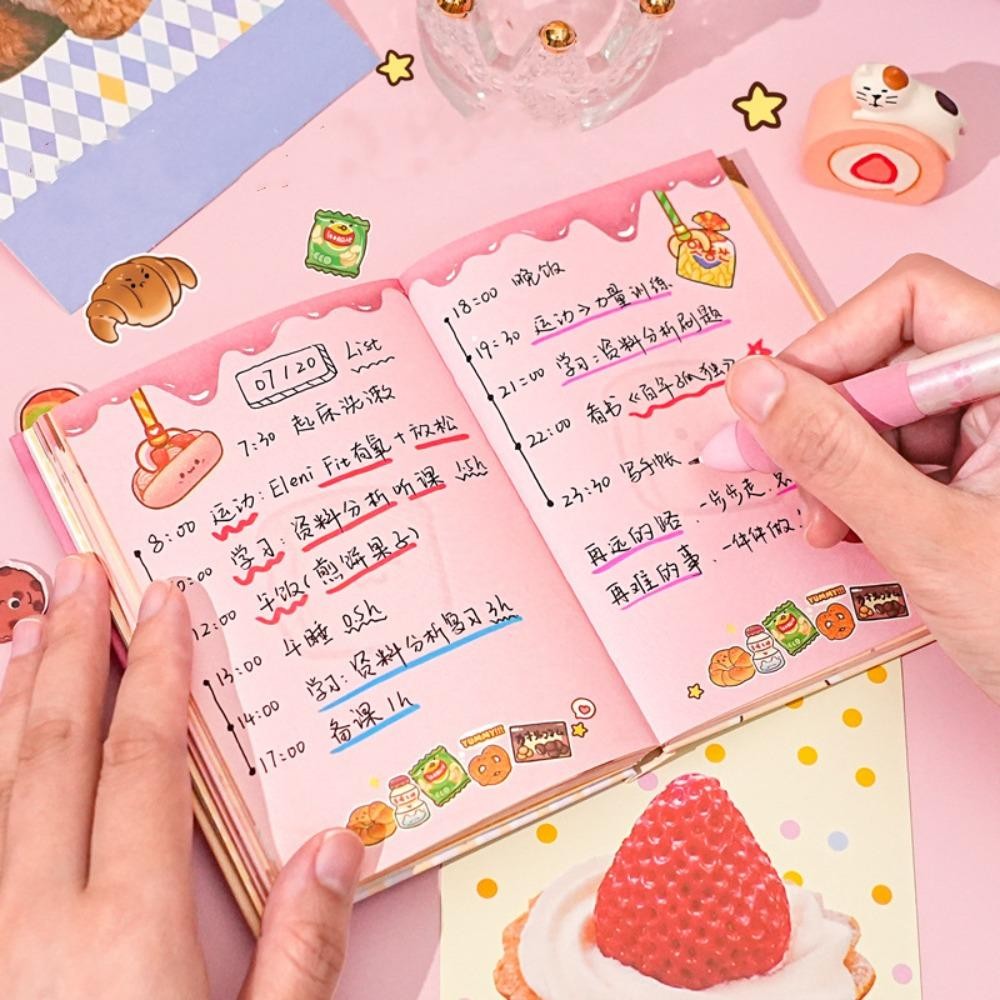 07/20 List
7:30 起床洗漱
8:00 运动: Eleni Fit有氧+放松
学习: 资料分析听课 1.5h
12:00 午饭(煎饼果子)
13:00 午睡 0.5h
14:00 学习: 资料分析复习 3h
17:00 备课 1h
YUMMY!!!
18:00 晚饭
19:30 运动>力量训练
21:00 学习: 资料分析刷题
22:00 看书《百年孤独》
23:30 写手帐
再远的路.一步步走.
再难的事.一件件做!
YUMMY!!!